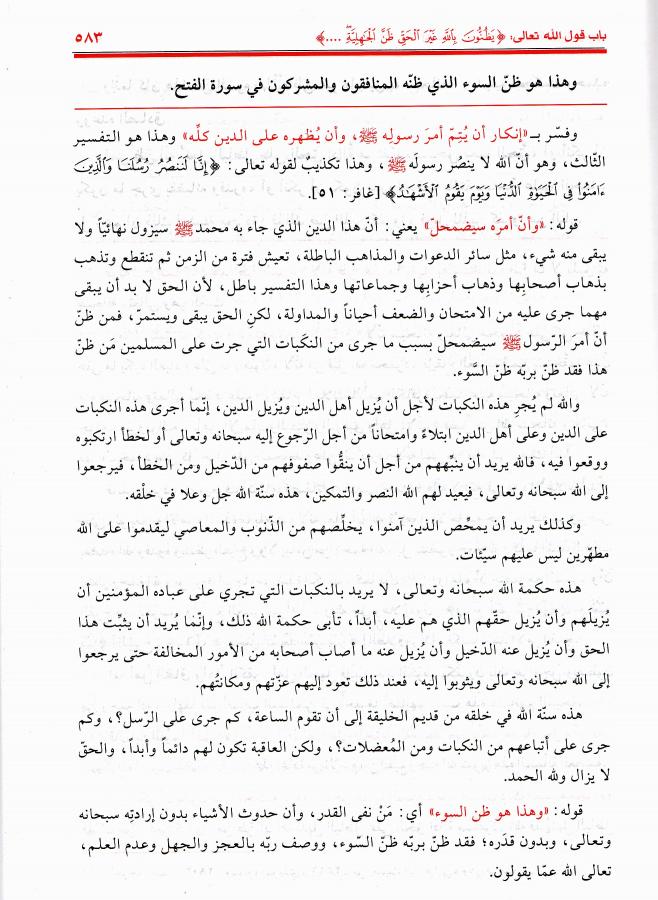 باب قول الله تعالى: ﴿يَظُنُّونَ بِاللَّهِ غَيْرَ الْحَقِّ ظَنَّ الْجَاهِلِيَّةِ ....﴾ ٥٨٣
وهذا هو ظنّ السوء الذي ظنّه المنافقون والمشركون في سورة الفتح.
وفسّر بـ«إنكار أن يُتِمّ أمرَ رسولِه ﷺ، وأن يُظهره على الدين كلِّه» وهذا هو التفسير
الثالث، وهو أنّ الله لا ينصُر رسولَه ﷺ، وهذا تكذيبٌ لقوله تعالى: ﴿إِنَّا لَنَنصُرُ رُسُلَنَا وَالَّذِينَ
ءَامَنُوا فِي الْحَيَوٰةِ الدُّنْيَا وَيَوْمَ يَقُومُ الْأَشْهَٰدُ﴾ [غافر: ٥١].
قوله: «وأنّ أمرَه سيضمحلّ» يعني: أنّ هذا الدين الذي جاء به محمد ﷺ سيزول نهائيّاً ولا
يبقى منه شيء، مثل سائر الدعوات والمذاهب الباطلة، تعيش فترة من الزمن ثم تنقطع وتذهب
بذهاب أصحابِها وذهاب أحزابِها وجماعاتها وهذا التفسير باطل، لأن الحق لا بد أن يبقى
مهما جرى عليه من الامتحان والضعف أحياناً والمداولة، لكنِ الحق يبقى ويستمرّ، فمن ظنّ
أنّ أمرَ الرّسول ﷺ سيضمحلّ بسبب ما جرى من النكَبات التي جرت على المسلمين مَن ظنّ
هذا فقد ظنّ بربّه ظنّ السَّوء.
والله لم يُجرِ هذه النكبات لأجل أن يُزيل أهل الدين ويُزيل الدين، إنّما أجرى هذه النكبات
على الدين وعلى أهل الدين ابتلاءً وامتحاناً من أجل الرّجوع إليه سبحانه وتعالى أو لخطأ ارتكبوه
ووقعوا فيه، فالله يريد أن ينبِّههم من أجل أن ينقُّوا صفوفهم من الدّخيل ومن الخطأ، فيرجعوا
إلى الله سبحانه وتعالى، فيعيد لهم الله النصر والتمكين، هذه سنّة الله جل وعلا في خلْقه.
وكذلك يريد أن يمحِّص الذين آمنوا، يخلِّصهم من الذّنوب والمعاصي ليقدموا على الله
مطهّرين ليس عليهم سيّئات.
هذه حكمة الله سبحانه وتعالى، لا يريد بالنكبات التي تجري على عباده المؤمنين أن
يُزيلَهم وأن يُزيل حقّهم الذي هم عليه، أبداً، تأبى حكمة الله ذلك، وإنّما يُريد أن يثبِّت هذا
الحق وأن يُزيل عنه الدّخيل وأن يُزيل عنه ما أصاب أصحابه من الأمور المخالفة حتى يرجعوا
إلى الله سبحانه وتعالى ويثوبوا إليه، فعند ذلك تعود إليهم عزّتهم ومكانتُهم.
هذه سنّة الله في خلقه من قديم الخليقة إلى أن تقوم الساعة، كم جرى على الرّسل؟، وكم
جرى على أتباعهم من النكبات ومن المُعضلات؟، ولكن العاقبة تكون لهم دائماً وأبداً، والحقّ
لا يزال ولله الحمد.
قوله: «وهذا هو ظن السوء» أي: مَنْ نفى القدر، وأن حدوث الأشياء بدون إرادتِه سبحانه
وتعالى، وبدون قدَره؛ فقد ظنّ بربّه ظنّ السّوء، ووصف ربّه بالعجز والجهل وعدم العلم،
تعالى الله عمّا يقولون.